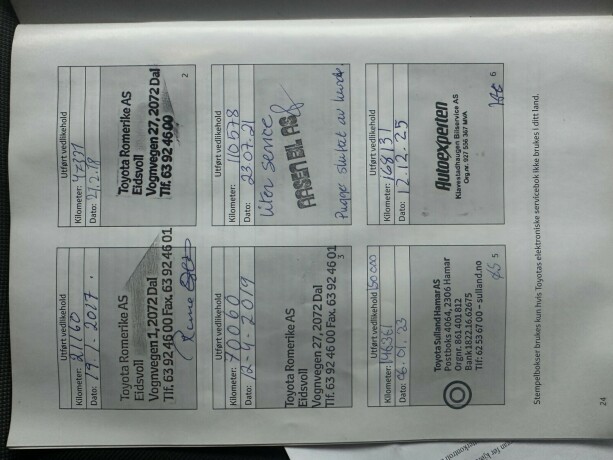 Utført vedlikehold
Kilometer: 21160
Dato: 19.1.2017.
Toyota Romerike AS
Eidsvoll
Vognvegen 1, 2072 Dal
Tlf. 63 92 46 00 Fax. 63 92 46 01
Utført vedlikehold
Kilometer: 47371
Dato: 21.2.18
Toyota Romerike AS
Eidsvoll
Vognvegen 27, 2072 Dal
Tlf. 63 92 46 00
2
Utført vedlikehold
Kilometer: 70060
Dato: 12-4-2019
Toyota Romerike AS
Eidsvoll
Vognvegen 27, 2072 Dal
Tlf. 63 92 46 00 Fax. 63 92 46 01
3
Utført vedlikehold
Kilometer: 110578
Dato: 23.07.21
liten service
AASEN BIL AS
Utført vedlikehold 150 000
Kilometer: 146361
Dato: 06.01.23
Toyota Sulland Hamar AS
Postboks 4064, 2306 Hamar
Orgnr. 861 401 812
Bank 1822.16.62675
Tlf: 62 53 67 00 - sulland.no
5
Utført vedlikehold
Kilometer: 168131
Dato: 12.12.25
Autoexperten
Klavestadhaugen Bilservice AS
Org.nr. 927 556 367 MVA
6
Stempelbokser brukes kun hvis Toyotas elektroniske servicebok ikke brukes i ditt land.
24